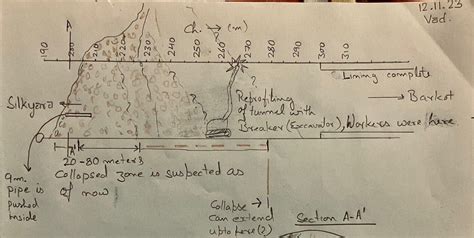 12.11.23
Vad.
A
Ch. → (m)
190
210
220
230
240
250
260
270
280
290
300
310
Lining complete
Silkyara
→ Barkot
?
?
?
Reprofiling
of tunnel with
Breaker (Excavator), Workers were here
A'
20-80 meters
Collapsed zone is suspected as
of now
9m.
pipe is
pushed
inside
Collapse
can extend
upto here (?)
Section A-A'